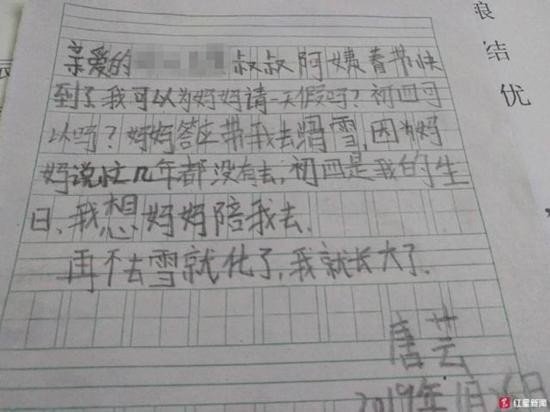 亲爱的 叔叔阿姨春节快
到了我可以为妈妈请一天假吗?初四可
以吗?妈妈答应带我去滑雪,因为妈
妈说忙几年都没有去,初四是我的生
日,我想妈妈陪我去.
再不去雪就化了,我就长大了.
唐芸
2019年1月 日
结优
红星新闻